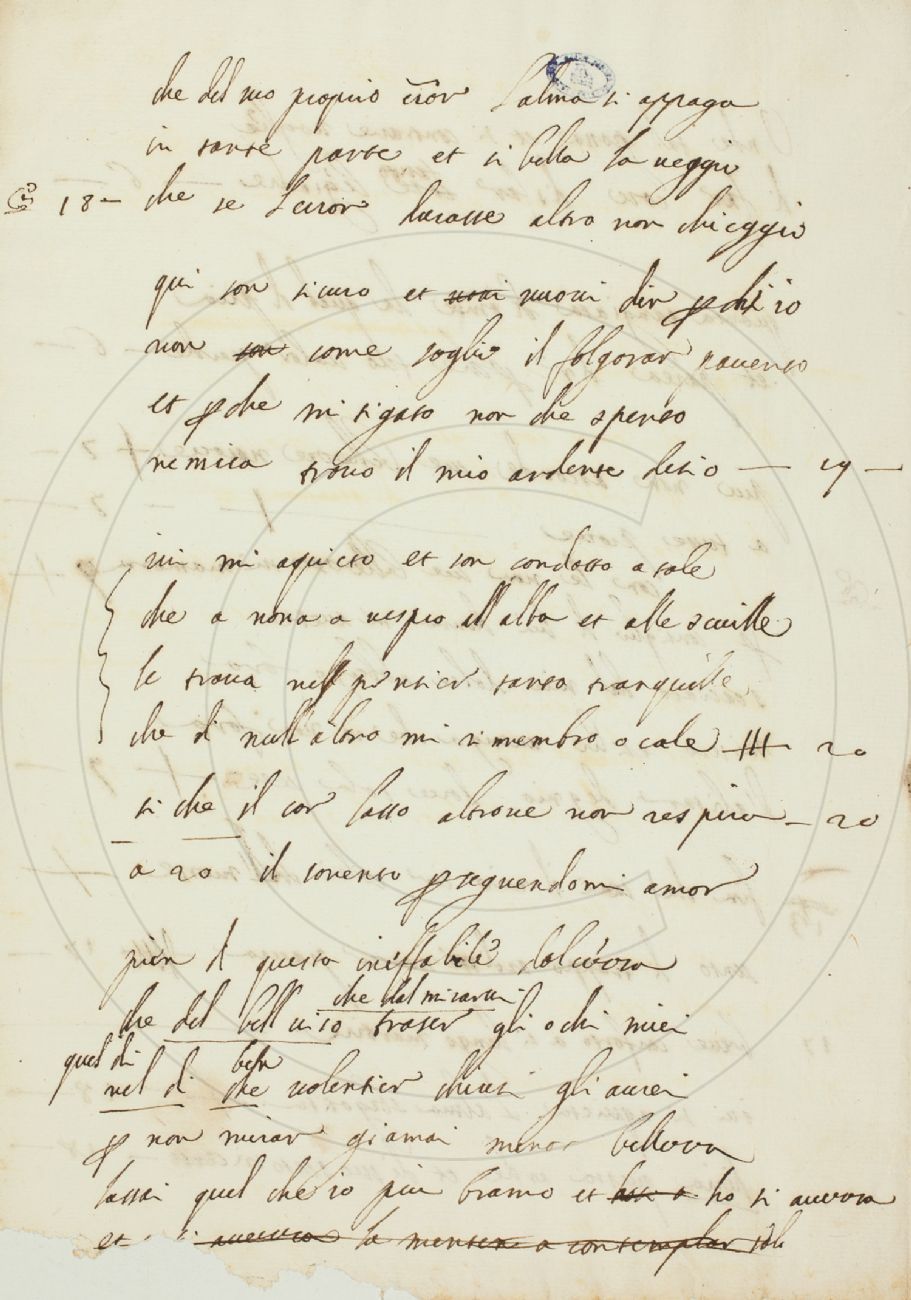 che del suo proprio error l'alma si appaga
in tante parte et si bella la ueggio
18 - che se l'error durasse altro non chieggio
qui son sicuro et uoui nuoui dir perch'io
non son come soglio il folgorar pauento
et perche mitigato non che spento
nemica trouo il mio ardente desio — 19 —
iui mi aqueto et son condotto a tale
che a nona a uespro all'alba et alle squille
le troua nell pensier tanto tranquille
che di null'altro mi rimembro o cale 20
si che il cor lasso altroue non respira - 20
a 20 il souente perseguendomi amor
pien di questa ineffabile dolcezza
che dal mirarui
che del bell uiso trasser gli ochi miei
quel di ben
nel di che uolentier chiusi gli aurei
per non mirar giamai minor bellezza
lassai quel che io piu bramo et ho si auezza
et si auezza la mente a contemplar sola